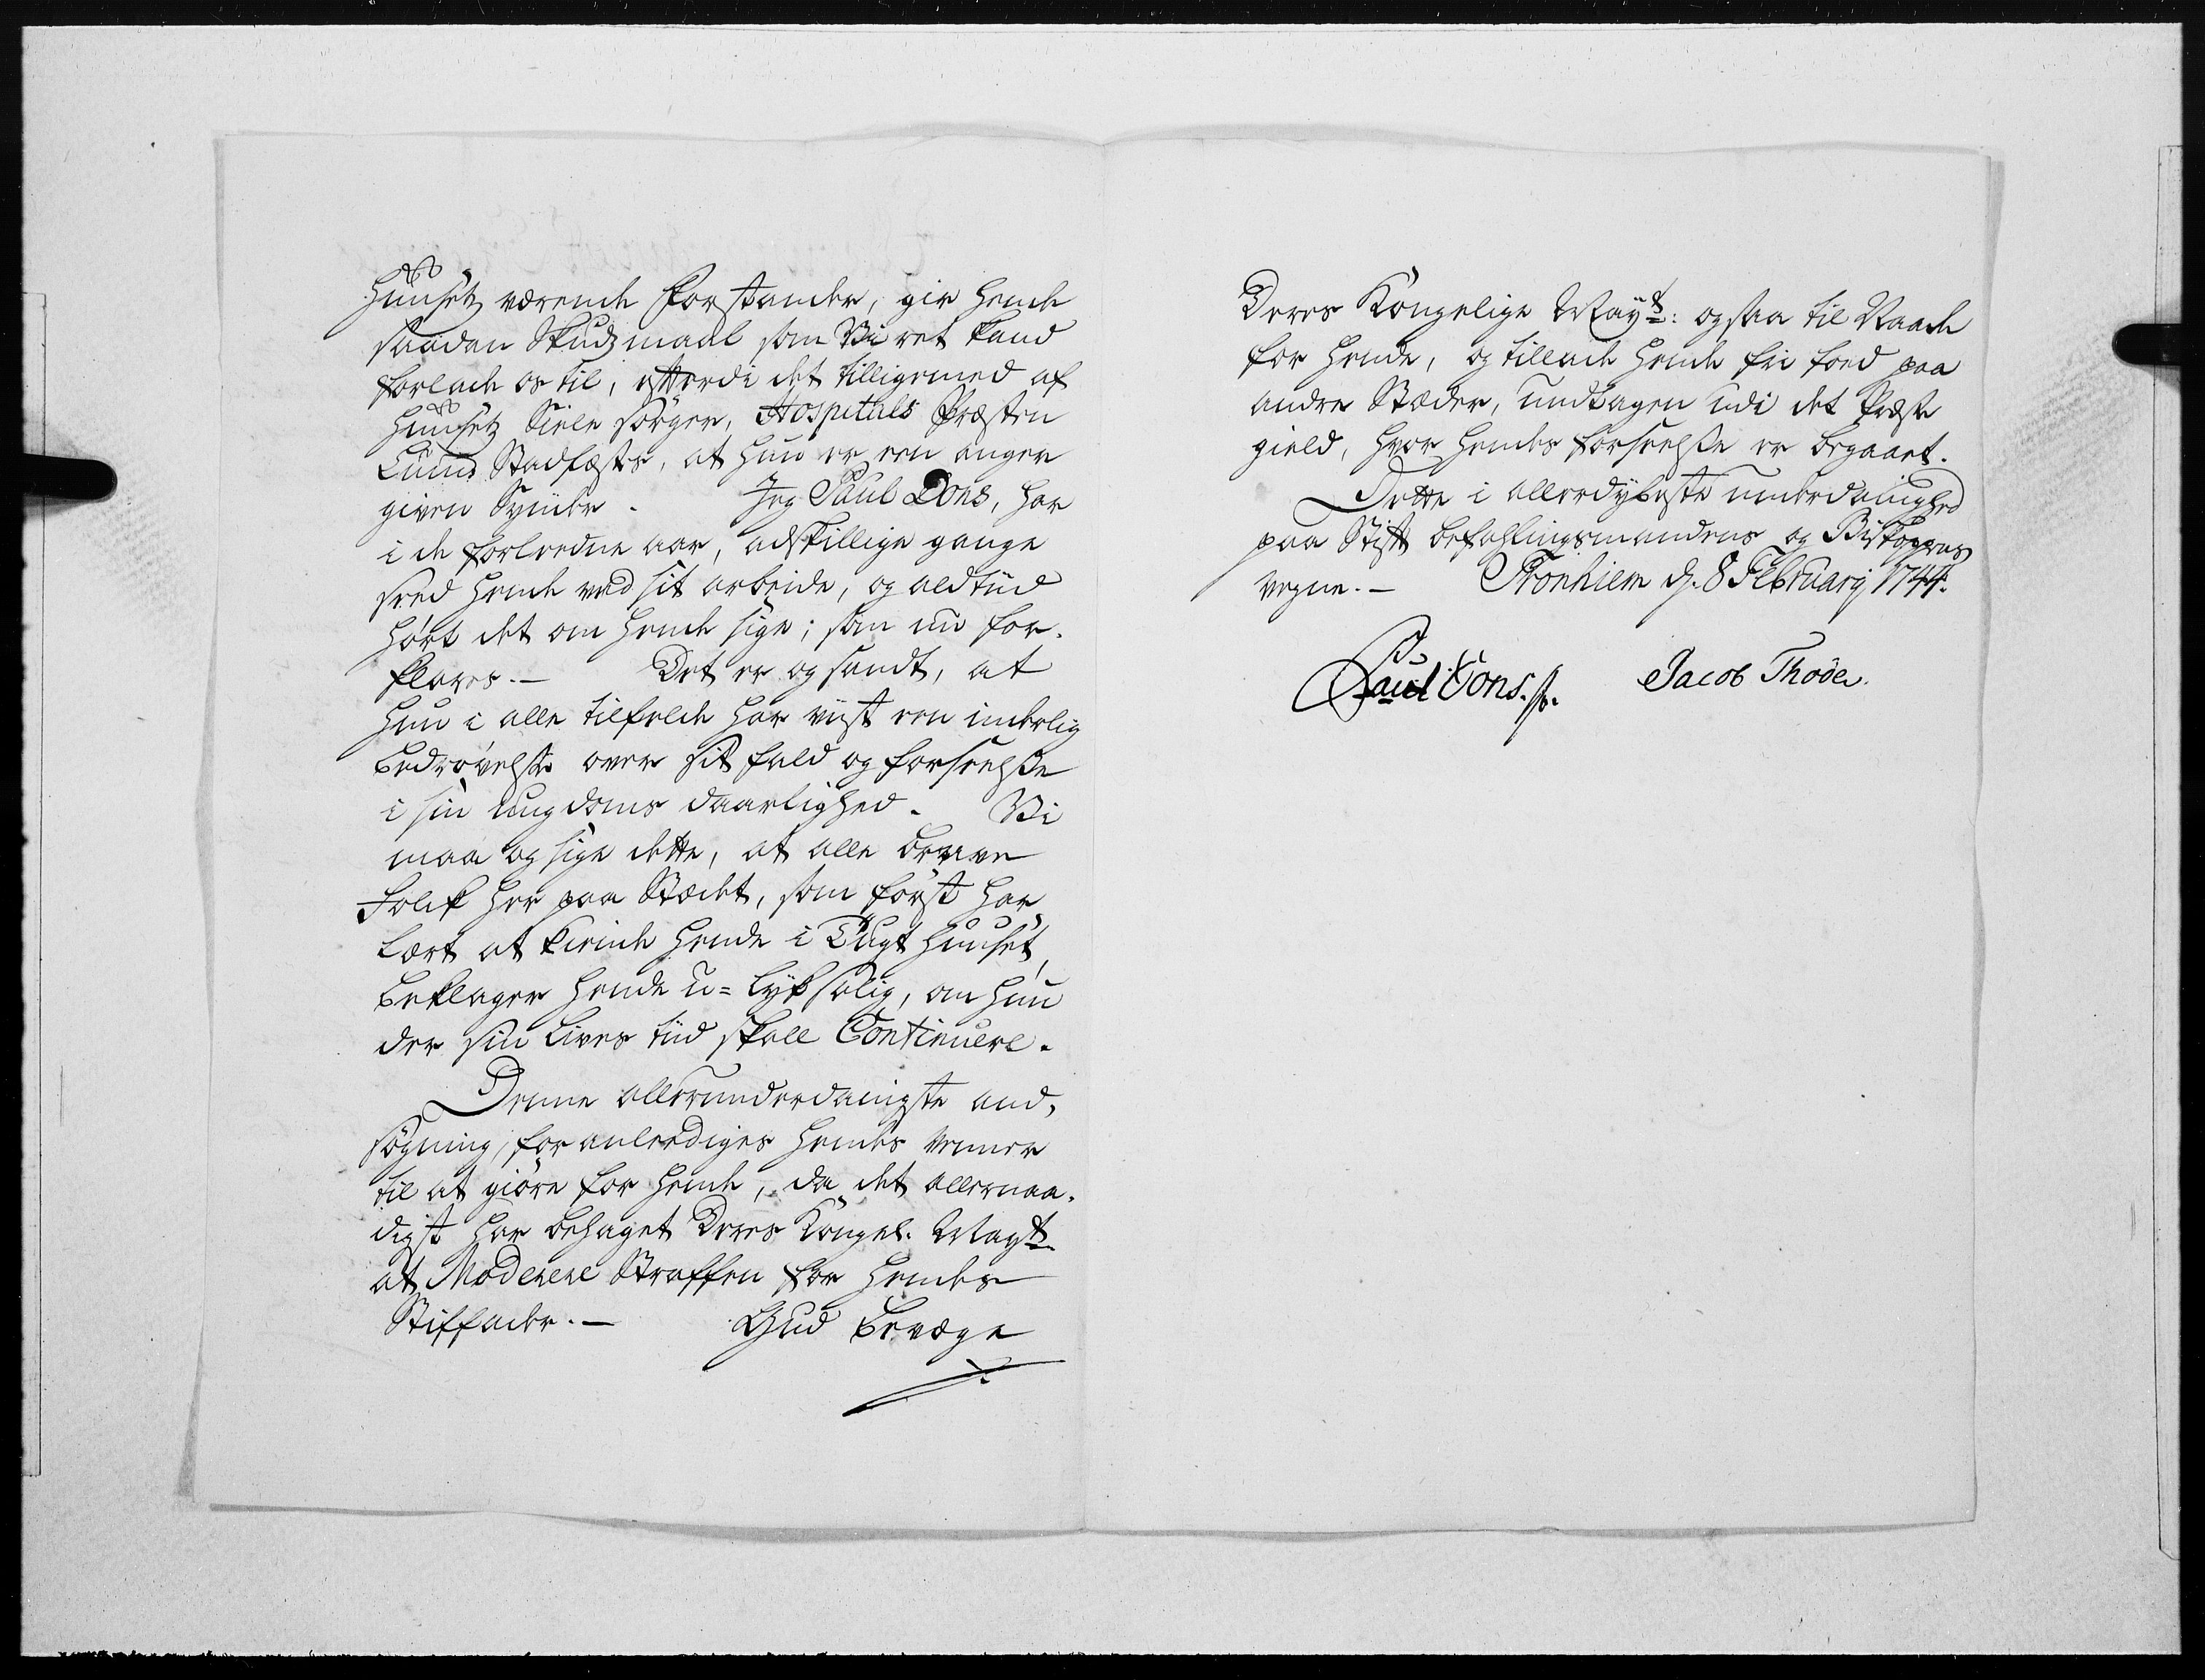 Huusetz værende Forstander, gir hende
saadan Skudzmaal som Vi ret kand
forlade os til, efterdi det tilligemed af
Huusetz Siele sörger, Hospitals Præsten
Lund Stadfæstes, at hun er een anger
given Synder. Jeg Paul Dons, har
i de forleedne aar, adskillige gange
seed hende ved sit arbeide, og altiid
hört det om hende sige; som nu for-
klares.— Det er og sandt, at
hun i alle tilfelde har viist een inderlig
bedrövelse over sit fald og forseelße
i sin ungdoms daarlighed. Vi
maa og sige dette, at alle brave
Folck her paa Stædet, som först har
lært at kiende hende i Tugt huuset,
beklager hende u=lyksalig, om hun
der sin Lives tiid skall Continuere.
Denne allerunderdanigste and-
sögning, foranlediges hendes venner
til at giöre for hende, da det allernaa-
digst har behaget Deres Kongel. Mayt.
at Moderere Straffen for hendes
Stiffader.— Gud bevæge
Deres Kongelige Mayt: ogsaa til Naade
for hende, og tillade hende frie foed paa
andre Stæder, undtagen udi det Præste
gield, hvor hendes forseelße er begaaet.
Dette i allerdybeste underdanighed
paa Stift befahlingsmandens og Biskoppens
vegne.— Tronhiem d. 8 February 1744.
Paul Dons. Jacob Thode.